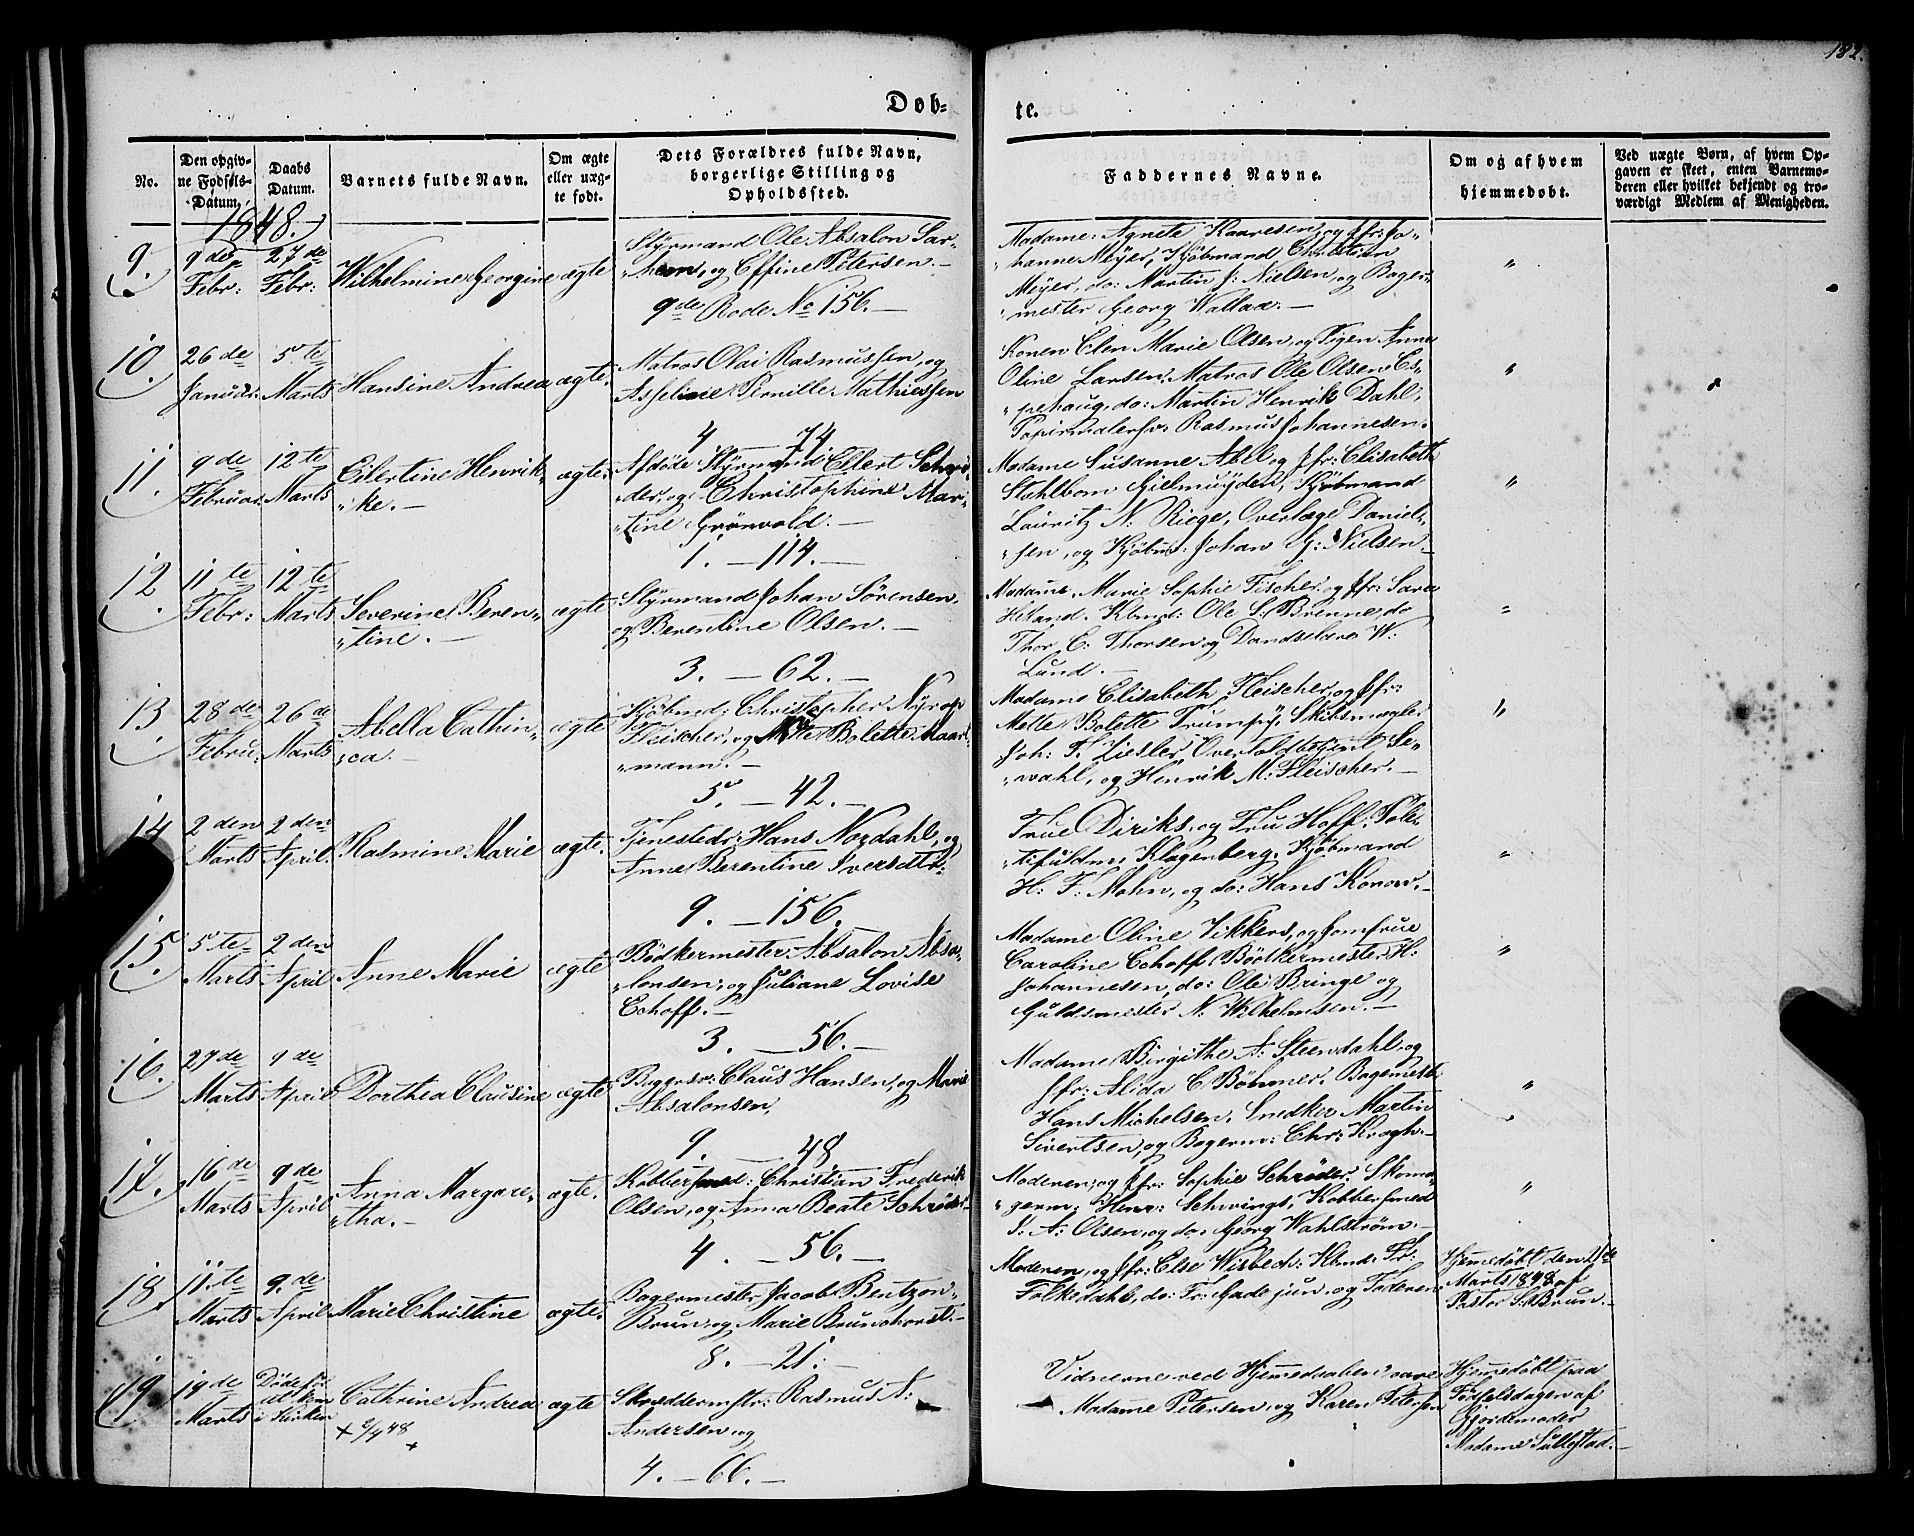 182.
Døb-
te.
No.
Den opgiv-
ne Fødsels-
Datum.
Daabs
Datum.
Barnets fulde Navn.
Om ægte
eller uæg-
te født.
Dets Forældres fulde Navn,
borgerlige Stilling og
Opholdssted.
Faddernes Navne.
Om og af hvem
hjemmedøbt.
Ved uægte Børn, af hvem Op-
gaven er skeet, enten Barnemo-
deren eller hvilket bekjendt og tro-
værdigt Medlem af Menigheden.
1848.
9.
9de
Febr:
27de
Febr:
Wilhelmine Georgine
ægte
Styrmand Ole Absalon
og Effine Petersen.
9de Rode No 156.
Madame Agnete Kaaresen, og Jfr: Jo-
hanne Meyer, Kjöbmand Christian
Meyer, do: Martin J: Nielsen, og Bager-
mester Georg Wallaa.
"
10.
26de
Januar:
5te
Marts
Hansine Andrea
ægte.
Matros Olai Rasmussen, og
Asseline Pernille Mathiessen
4 — 74
Konen Elen Marie Olsen, og Pigen Anne
Oline Larsen. Matros Ole Olsen Es-
pehaug, do: Martin Henrik Dahl,
Rasmus Johannesen.
"
11.
9de
Februar.
12te
Marts
Eilertine Henrik-
ke.
ægte.
Afdöde Styrmand Ellert Schrö-
der, og Christophine Mar-
tine Grönvold.
1. — 114.
Madame Susanne Abel, og Jfr: Elisabeth
Stahlbom Gielmuyden, Kjøbmand
Lauritz N. Riege, Overlæge Daniel-
sen, og Kjøbm: Johan G: Nielsen
"
12
11te
Febr:
12te
Marts
Severine Beren-
tine.
ægte
Styrmand Johan Sörensen,
og Berentine Olsen.
3. — 62.
Madame Marie Sophie Fischer, og Jfr: Sara
Ole S: Brenne do
Thor C. Thorsen og Dandselærer W.
Lund.
"
13
28de
Febru:
26de
Marts
Abella Cathin-
ca.
ægte
Kjöbmd: Christopher Nyrop
Fleischer, og Mette Bolette
mann.
5. — 42.
Madame Elisabeth Fleischer, og Jfr:
Mette Bolette Trumpy, Skibsmægler
Joh: F. Ziesler, Se-
wahl, og Henrik M. Fleischer.
"
14
2den
Marts
2den
April.
Rasmine Marie
ægte.
Tjenestedr: Hans Nordahl, og
Anne Berentine Iversdtr:
9. — 156.
Frue Diriks, og Fru Hoff. Poli-
tifuldm: Klagenberg, Kjøbmand
H: F. Mohn, og do: Hans Konow.
"
15.
5te
Marts
2den
April
Anne Marie
ægte
Bödkermester Absalon Absa-
lonsen, og Juliane Lovise
Echoff.
3. — 56.
Madame Oline Vikkers, og Jomfrue
Caroline Echoff, Bödkermester H:
Johannesen, do: Ole Bringe og
Guldsmester N. Wilhelmsen.
"
16.
27de
Marts
9de
April
Dorthea Clausine
ægte
Bagersv: Claus Hansen, og Marie
Absalonsen.
9. — 48
Madame Birgithe A. Steendahl, og
Jfr: Alida C. Böhmer, Bagemest:
Hans Michelsen, Snedker Martin
Sivertsen, og Bagerm: Chr: Krogh.
"
17.
16de
Marts
9de
April
Anna Margare-
tha.
ægte.
Kobbersmed: Christian Frederik
Olsen, og Anna Beate Schröder
4. — 56.
Moderen, og Jfr: Sophie Schröder. Skoma-
germ: Henr: Schwings, Kobbersmed
I. A. Olsen, og do: Georg Wahlström.
"
18.
11te
Marts
9de
April
Marie Christine
ægte.
Bagermester Jacob Bentzon
Brun, og Marie Brunchorst.
8. — 21.
Moderen, og Jfr: Else Wisbech. Kbmd: Fr:
Folkedahl, do: Fr: Gade jun, og Faderen
Hjemedöbt den
Marts 1848 af
Pastor S: Brun.
19.
19de
Marts
Döde för
i Kirken
Cathrine Andrea
ægte
Skræddermstr: Rasmus A:
Andersen og
4. — 66.
Vidnerne ved Hjemedaaben vare
Madame Petersen, og Karen Petersen
Hjemedöbt paa
Födselsdagen af
Gjordemoder
Madame Sullestad.